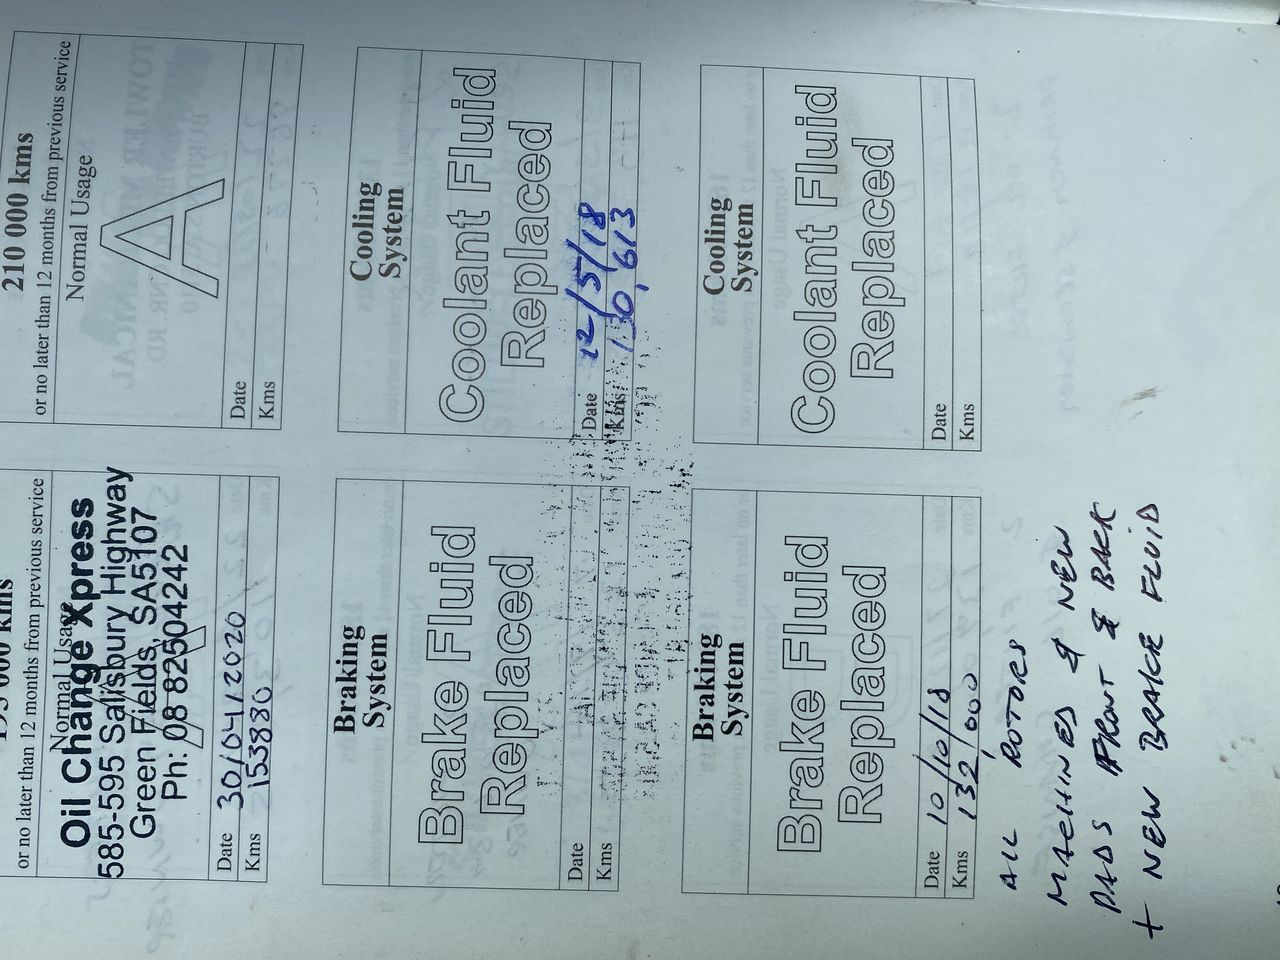 or no later than 12 months from previous service
Normal Usage
Oil Change Xpress
585-595 Salisbury Highway
Green Fields, SA5107
Ph: 08 82504242
Date 30/04/2020
Kms 153880
210 000 kms
or no later than 12 months from previous service
Normal Usage
A
Date
Kms
Braking
System
Brake Fluid
Replaced
Date
Kms
Cooling
System
Coolant Fluid
Replaced
Date 12/5/18
Kms 130,613
Braking
System
Brake Fluid
Replaced
Date 10/10/18
Kms 132,000
Cooling
System
Coolant Fluid
Replaced
Date
Kms
ALL ROTORS
MACHINED & NEW
PADS FRONT & BACK
+ NEW BRAKE FLUID